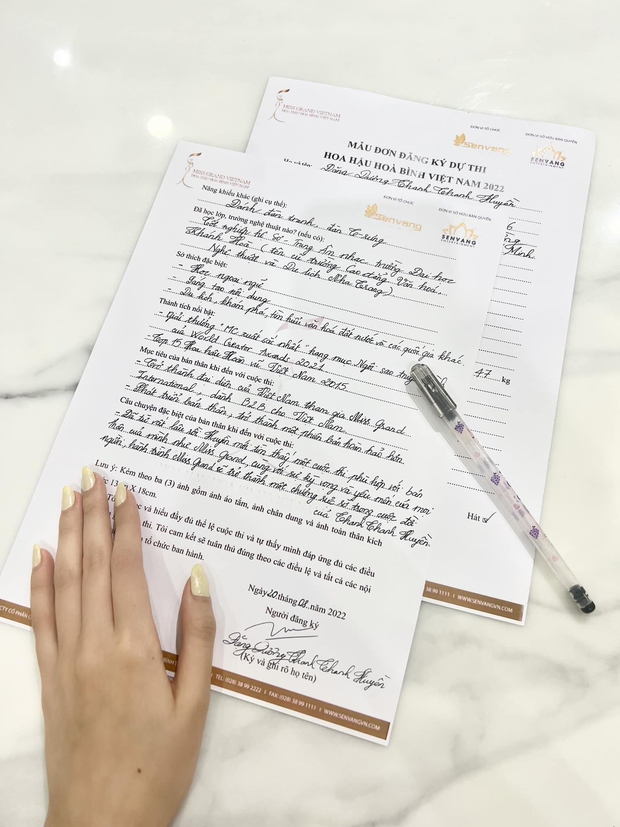 MISS GRAND VIETNAM
HOA HẬU HÒA BÌNH VIỆT NAM
ĐƠN VỊ TỔ CHỨC
ĐƠN VỊ SỞ HỮU BẢN QUYỀN
senvang
SENVANG
MẪU ĐƠN ĐĂNG KÝ DỰ THI
HOA HẬU HOÀ BÌNH VIỆT NAM 2022
Họ và tên: Đặng Dương Thanh Thanh Huyền
6
Minh
47 kg
Hát ✓
38 99 1111 | WWW.SENVANGVN.COM
MISS GRAND VIETNAM
HOA HẬU HÒA BÌNH VIỆT NAM
ĐƠN VỊ TỔ CHỨC
ĐƠN VỊ SỞ HỮU BẢN QUYỀN
senvang
SENVANG
Năng khiếu khác (ghi cụ thể):
- Đánh đàn tranh, đàn T'rưng
Đã học lớp, trường nghệ thuật nào? (nếu có):
- Tốt nghiệp hệ Sơ - Trung Âm nhạc trường Đại học
Khánh Hoà (tên cũ trường Cao đẳng Văn hoá,
Nghệ thuật và Du lịch Nha Trang)
Sở thích đặc biệt:
- Học ngoại ngữ
- Sáng tạo nội dung
- Du lịch, khám phá, tìm hiểu văn hoá đất nước và các quốc gia khác
Thành tích nổi bật:
- Giải thưởng "MC xuất sắc nhất" hạng mục Ngôi sao
của World Creator Awards 2021
- Top 15 Hoa hậu Hoàn vũ Việt Nam 2015
Mục tiêu của bản thân khi đến với cuộc thi:
- Trở thành đại diện của Việt Nam tham gia Miss Grand
International, dành B2B cho Việt Nam
- Phát triển bản thân, trở thành một phiên bản hoàn hảo hơn
Câu chuyện đặc biệt của bản thân khi đến với cuộc thi:
- Đã từ rất lâu rồi Huyền mới tìm thấy một cuộc thi phù hợp với bản
thân của mình như Miss Grand, cùng với sự kỳ vọng và yêu mến của mọi
người, hành trình Miss Grand sẽ trở thành một chương rực rỡ trong cuộc đời
của Thanh Thanh Huyền
Lưu ý: Kèm theo ba (3) ảnh gồm ảnh áo tắm, ảnh chân dung và ảnh toàn thân kích
13 X 18cm.
và hiểu đầy đủ thể lệ cuộc thi và tự thấy mình đáp ứng đủ các điều
thi. Tôi cam kết sẽ tuân thủ đúng theo các điều lệ và tất cả các nội
tổ chức ban hành.
Ngày 20 tháng 08 năm 2022
Người đăng ký
Đặng Dương Thanh Thanh Huyền
(Ký và ghi rõ họ tên)
CTY CỔ PHẦN
TEL: (028) 38 99 2222 | FAX: (028) 38 99 1111 | WWW.SENVANGVN.COM